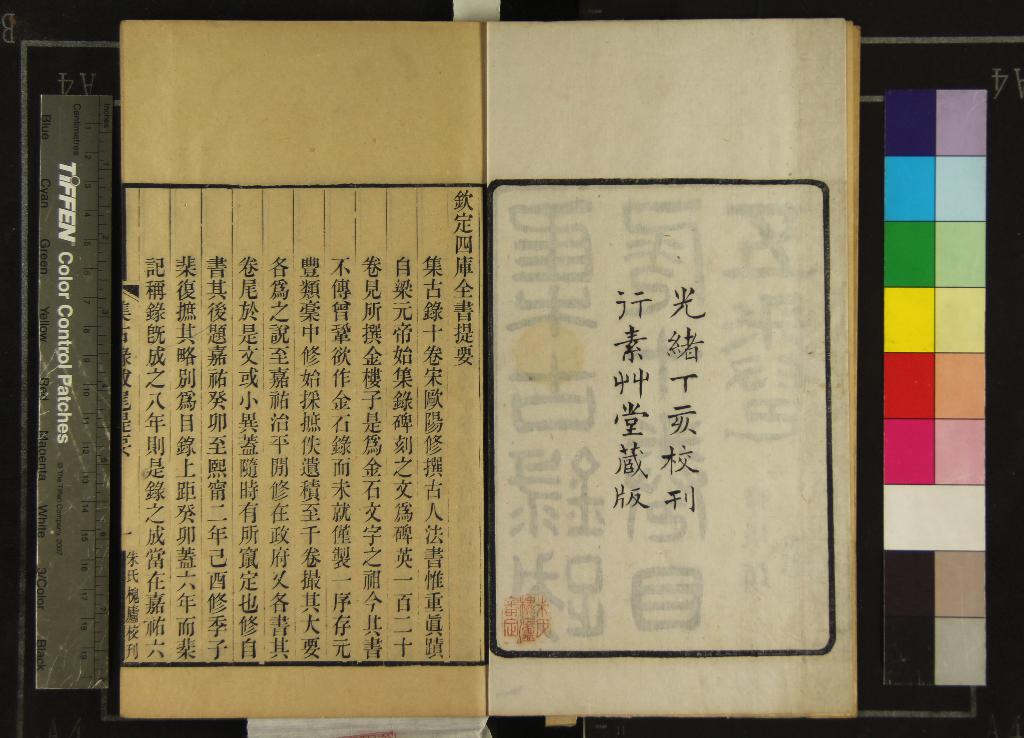 光緒丁亥校刊
行素艸堂藏版
欽定四庫全書提要
集古錄十卷宋歐陽修撰古人法書惟重眞蹟
自梁元帝始集錄碑刻之文爲碑英一百二十
卷見所撰金樓子是爲金石文字之祖今其書
不傳曾鞏欲作金石錄而未就僅製一序存元
豐類稾中修始採摭佚遺積至千卷撮其大要
各爲之說至嘉祐治平閒修在政府又各書其
卷尾於是文或小異蓋隨時有所竄定也修自
書其後題嘉祐癸卯至熙甯二年己酉修季子
棐復摭其略別爲目錄上距癸卯蓋六年而棐
記稱錄旣成之八年則是錄之成當在嘉祐六
一
朱氏槐廬校刊
TIFFEN Color Control Patches
© The Tiffen Company, 2007
Centimetres
Inches
Blue
Cyan
Green
Yellow
Red
Magenta
White
3/Color
Black
A4
A4
B